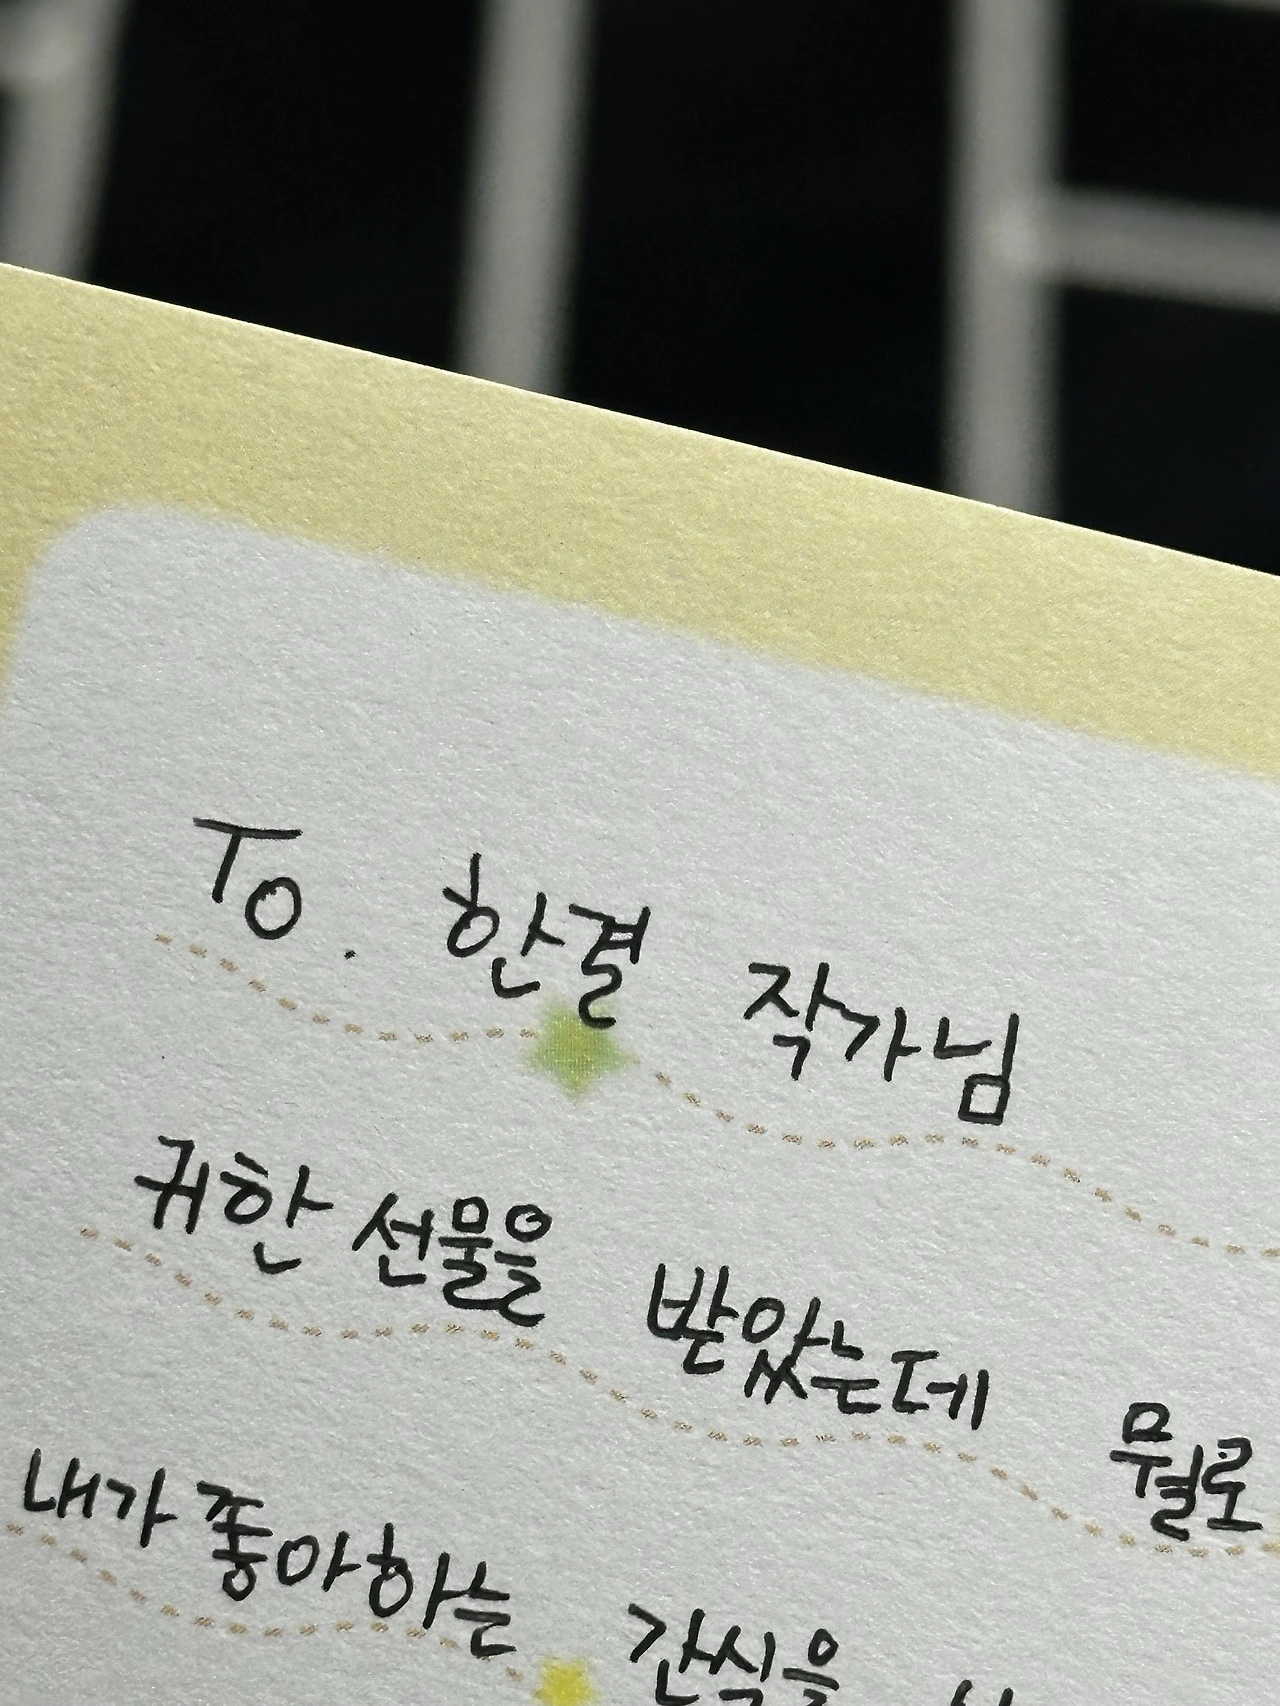 To. 한결 작가님
귀한 선물을 받았는데 뭘로
내가 좋아하는 간식을